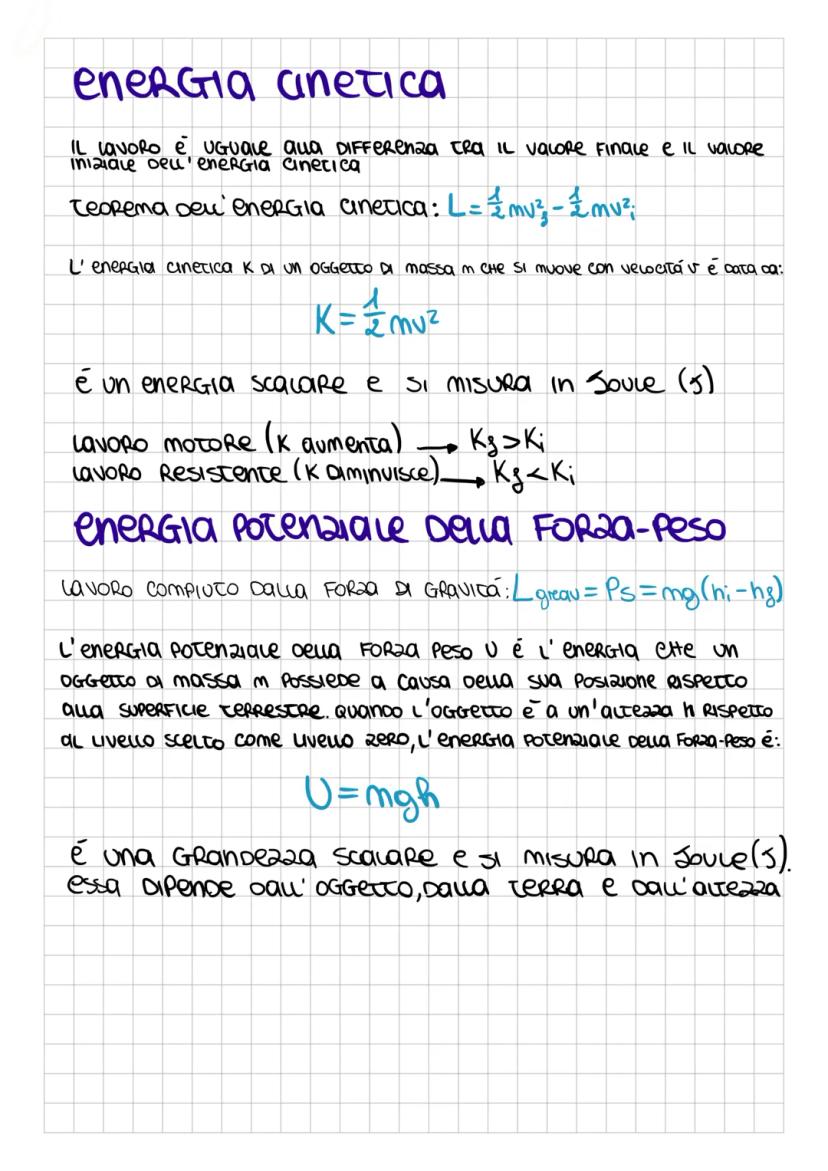 ENERGIA CINETICA
IL LAVORO É UGUALE ALLA DIFFERENZA TRA IL VALORE FINALE E IL VALORE
INIZIALE DELL'ENERGIA CINETICA
TEOREMA DELL'ENERGIA CINETICA: L = 1/2 mv²f - 1/2 mv²i
L'ENERGIA CINETICA K DI UN OGGETTO DI MASSA m CHE SI MUOVE CON VELOCITÁ v É DATA DA:
K = 1/2 mv²
É UN ENERGIA SCALARE E SI MISURA IN JOULE (J)
LAVORO MOTORE (K AUMENTA) → Kf > Ki
LAVORO RESISTENTE (K DIMINUISCE) → Kf < Ki
ENERGIA POTENZIALE DELLA FORZA-PESO
LAVORO COMPIUTO DALLA FORZA DI GRAVITÁ: Lgrav = Ps = mg(hi - hf)
L'ENERGIA POTENZIALE DELLA FORZA PESO U É L'ENERGIA CHE UN
OGGETTO DI MASSA m POSSIEDE A CAUSA DELLA SUA POSIZIONE RISPETTO
ALLA SUPERFICIE TERRESTRE. QUANDO L'OGGETTO É A UN'ALTEZZA h RISPETTO
AL LIVELLO SCELTO COME LIVELLO ZERO, L'ENERGIA POTENZIALE DELLA FORZA-PESO É:
U = mgh
É UNA GRANDEZZA SCALARE E SI MISURA IN JOULE (J).
ESSA DIPENDE DALL'OGGETTO, DALLA TERRA E DALL'ALTEZZA